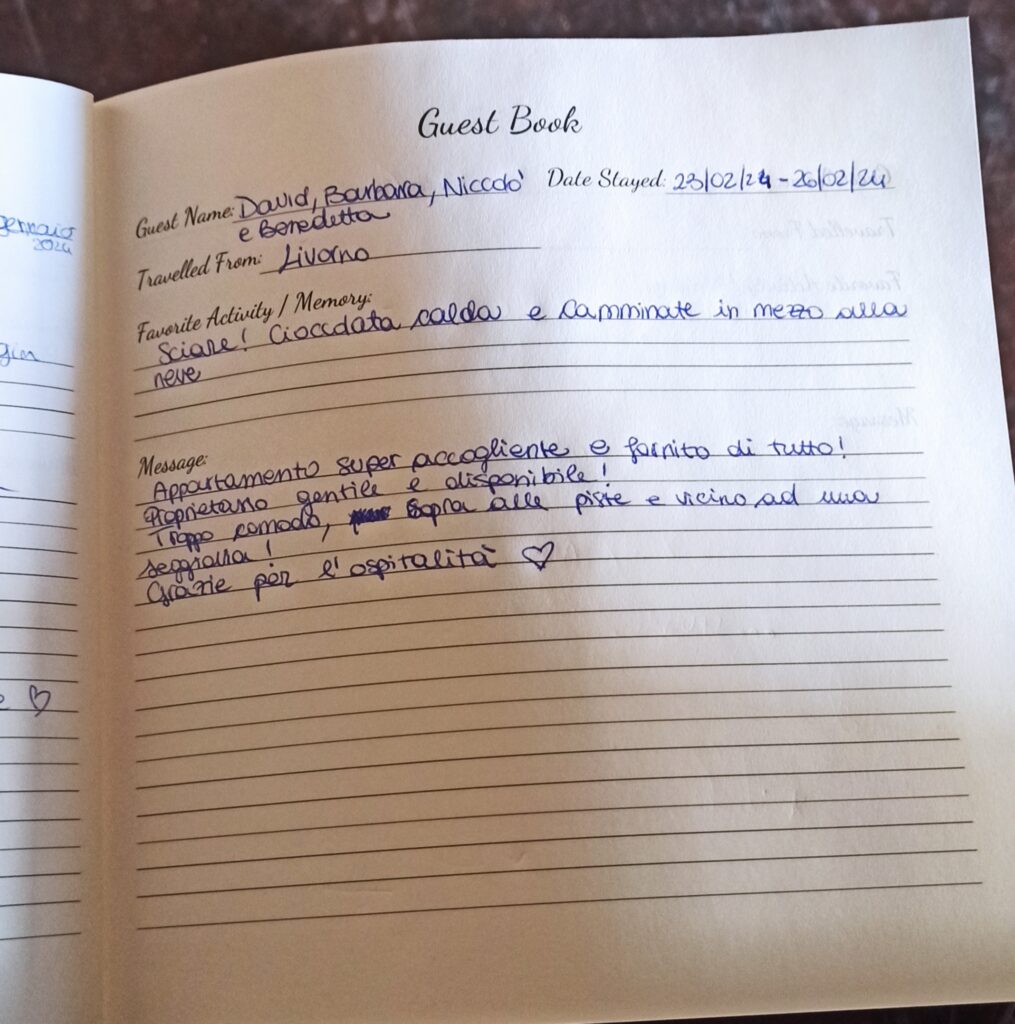 gennaio
2024
gin
Guest Book
Guest Name: David, Barbara, Niccolò
e Benedetta
Date Stayed: 23/02/24 - 26/02/24
Travelled From: Livorno
Favorite Activity / Memory:
Sciare! Cioccolata calda e camminate in mezzo alla
neve
Message:
Appartamento super accogliente e fornito di tutto!
Proprietario gentile e disponibile!
Troppo comodo, sopra alle piste e vicino ad una
seggiovia!
Grazie per l'ospitalità ♡